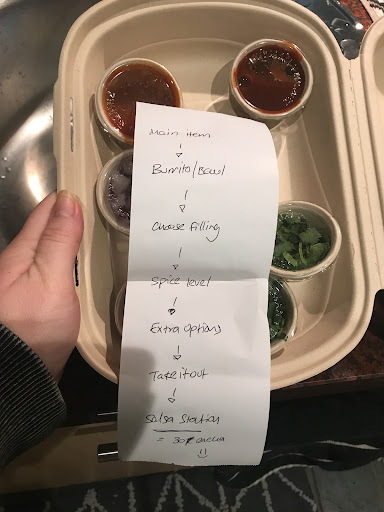 Main item
Burrito/Bowl
Choose filling
Spice level
Extra options
Take it out
Salsa Station
= 30